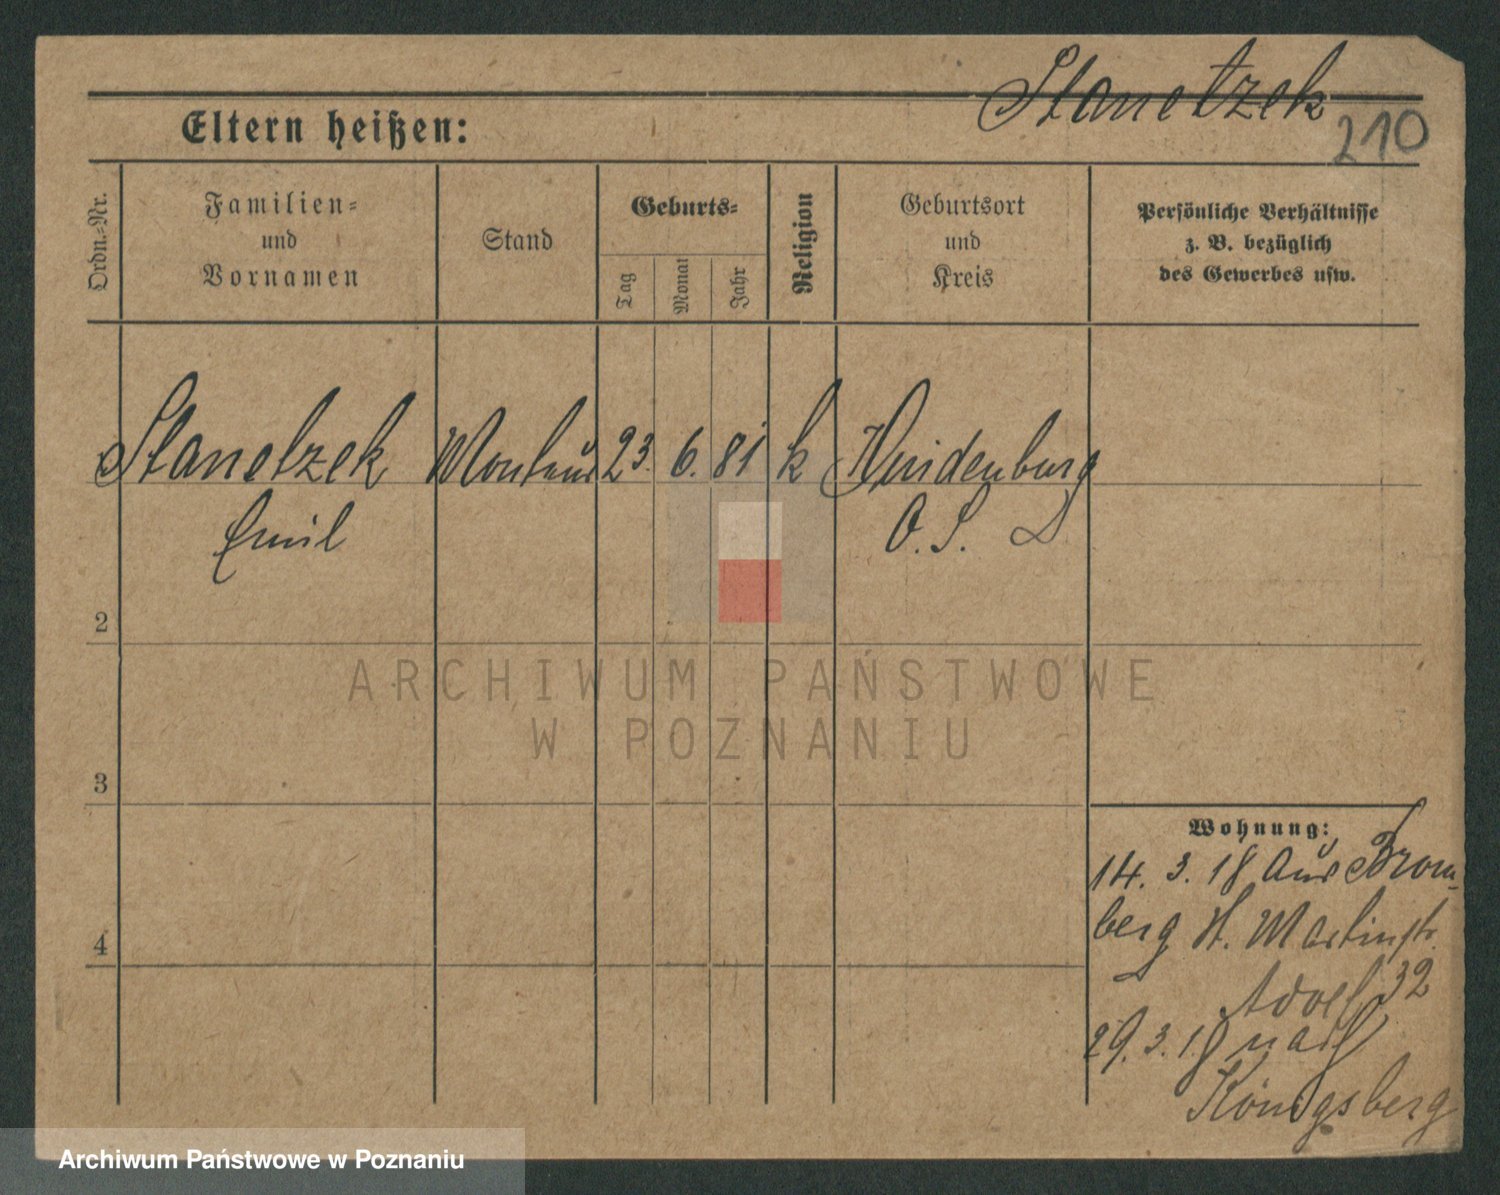 Stanetzek
210
Eltern heißen:
Ordn.-Nr.
Familien-
und
Vornamen
Stand
Geburts-
Tag
Monat
Jahr
Religion
Geburtsort
und
Kreis
Persönliche Verhältnisse
z. B. bezüglich
des Gewerbes usw.
Stanetzek Monteur 23. 6. 81 k Hindenburg
Emil O. S.
2
3
4
Wohnung:
14. 3. 18 aus Brom-
berg St. Martinstr.
32
29. 3. 18 nach
Königsberg
ARCHIWUM PAŃSTWOWE
W POZNANIU
Archiwum Państwowe w Poznaniu